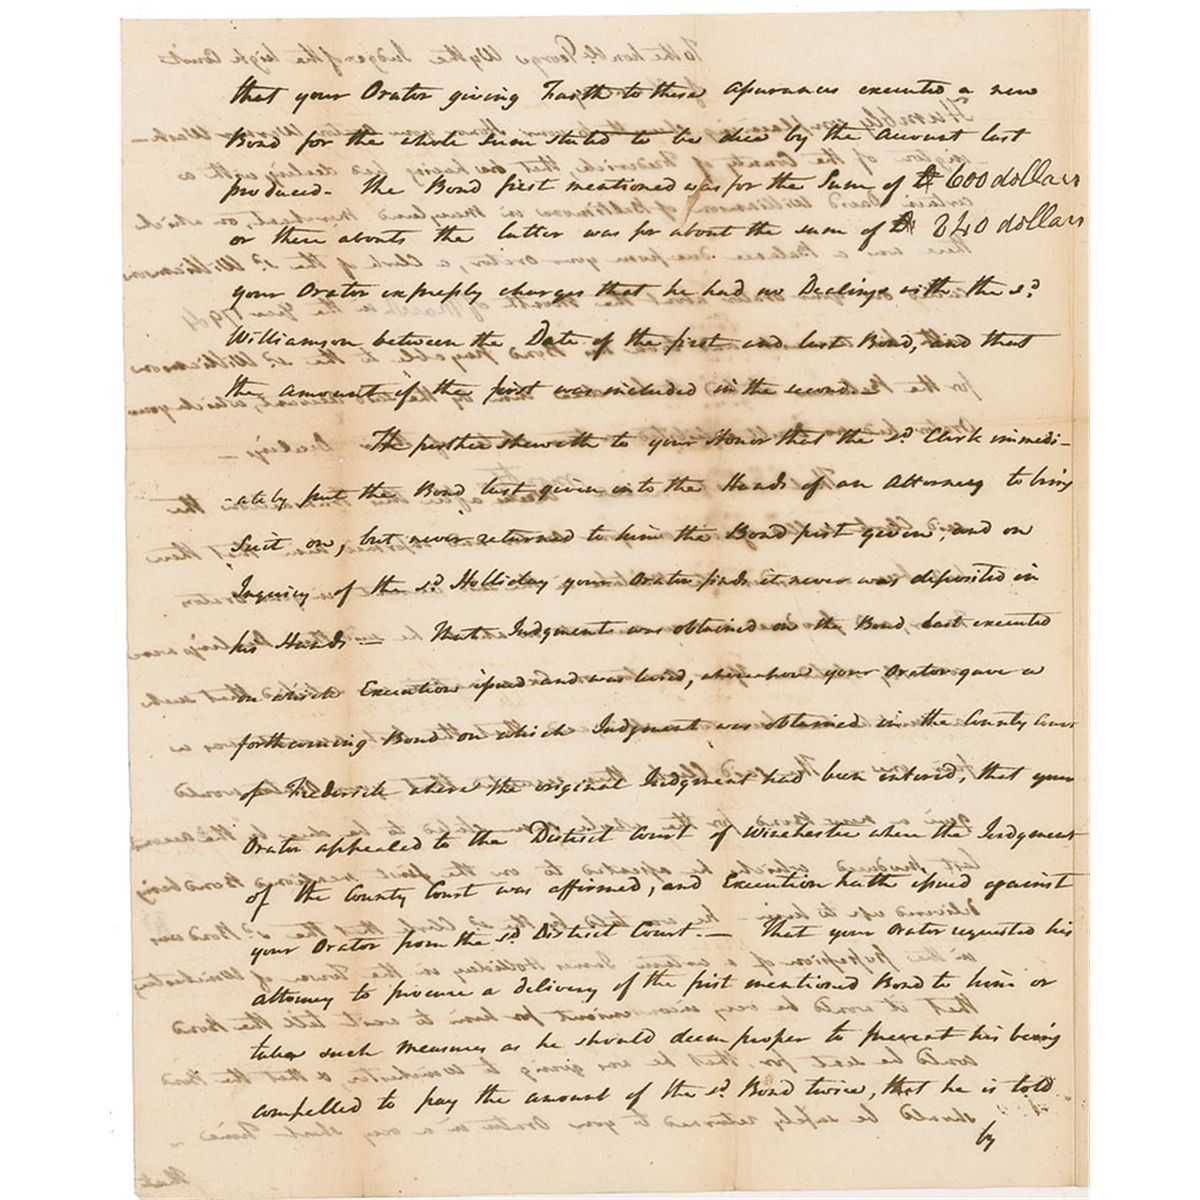 that your Orator giving Faith to these apurances executed a new
Bond for the whole Sum stated to be due by the account last
produced - the Bond first mentioned was for the Sum of 600 dollars
or there abouts the latter was for about the sum of 240 dollars
your Orator expressly charges that he had no Dealings with the sd
Williamson between the Date of the first and last Bond, and that
the amount of the first was included in the second -
He further sheweth to your Honor that the sd Clerk immedi-
-ately put the Bond last given into the Hands of an Attorney to bring
Suit on, but never returned to him the Bond first given, and on
Inquiry of the sd Holliday your Orator finds it never was deposited in
his Hands - That Judgments was obtained on the Bond last executed
on which Execution issued and was levied, whereupon your Orator gave a
forthcoming Bond on which Judgment was obtained in the County Court
of Frederick where the original Judgment had been entered, that your
Orator appealed to the District Court of Winchester where the Judgment
of the County Court was affirmed, and Execution hath issued against
your Orator from the sd District Court. - That your Orator requested his
attorney to procure a delivery of the first mentioned Bond to him or
take such measures as he should deem proper to prevent his being
compelled to pay the amount of the sd Bond twice, that he is told
by